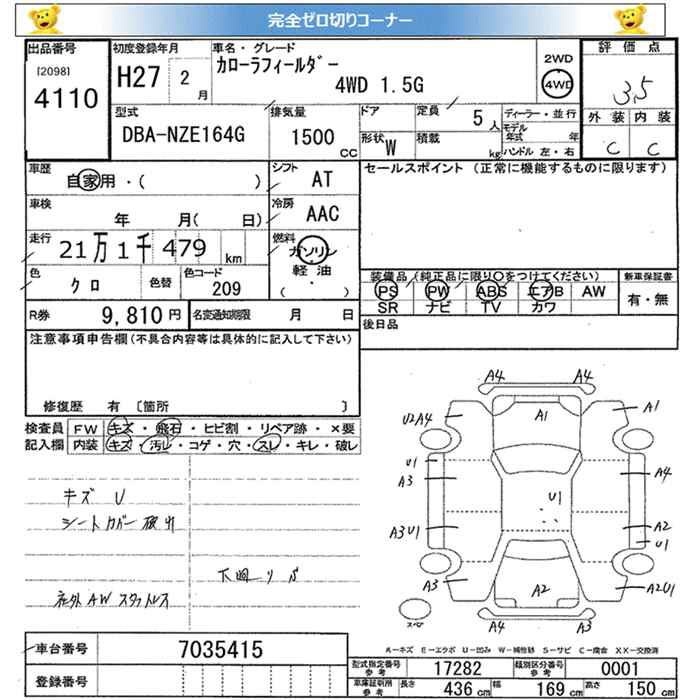 完全ゼロ切りコーナー
出品番号 初度登録年月 車名・グレード 評価点
[2098] 4110
H27 2 月
カローラフィールダー
4WD 1.5G
2WD
4WD
3.5
外装 内装
C C
型式 排気量 ドア 定員 5 人 ディーラー・並行
DBA-NZE164G 1500 cc 形状 W 積載 kg
モデル年式 年
ハンドル 左・右
車歴 自家用・( ) シフト AT
セールスポイント (正常に機能するものに限ります)
車検 年 月( 日) 冷房 AAC
走行 21万1千479 km 燃料 ガソリン 軽油 ( ・ )
色 クロ 色替 色コード 209
装備品(純正品に限り〇をつけてください) 新車保証書
PS PW ABS エアB AW 有・無
SR ナビ TV カワ
R券 9,810 円 名変通知期限 月 日
後日品
注意事項申告欄(不具合内容等は具体的に記入して下さい)
修復歴 有 〔箇所 〕
検査員 FW キズ・飛石・ヒビ割・リペア跡・×要
記入欄 内装 キズ・汚レ・コゲ・穴・スレ・キレ・破レ
キズ U
シートカバー 検出
下回リ サビ
社外AW スタットレス
A4 A4
U2A4 A1 A1
U1 A3 U1 A4
A3U1 A2 U1
A3 A2 A2U1
A4 A3
スペア
A−キズ E−エクボ U−凹み W−補修跡 S−サビ C−腐食 XX−交換済
車台番号 7035415
登録番号
型式指定番号 参考 17282 類別区分番号 参考 0001
車庫証明用 参考 長さ 436 cm 幅 169 cm 高さ 150 cm